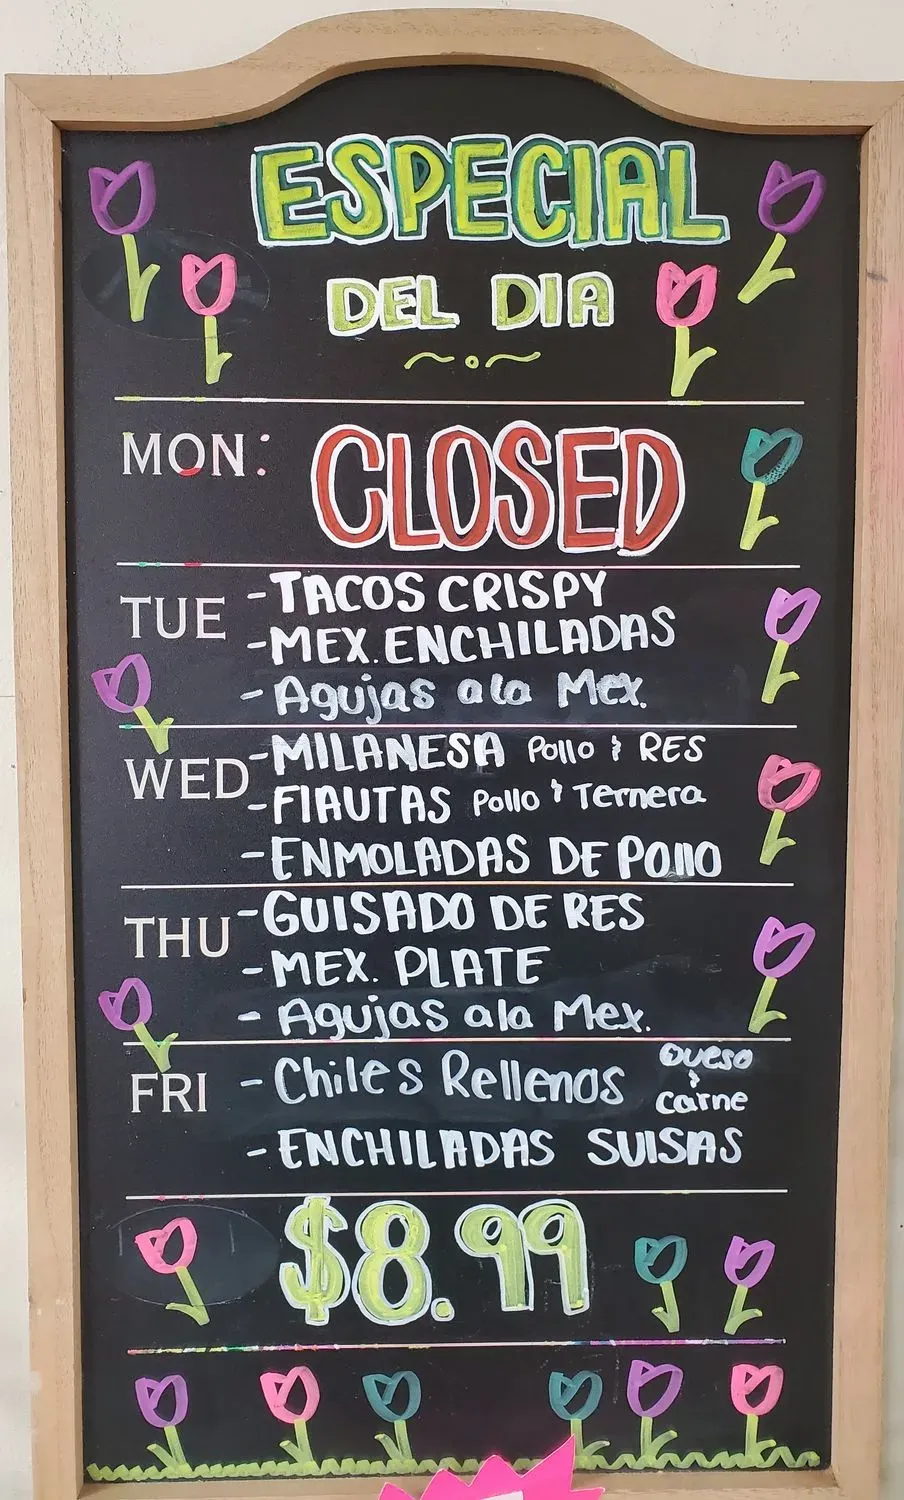 ESPECIAL
DEL DIA
MON: CLOSED
TUE -TACOS CRISPY
-MEX. ENCHILADAS
-Agujas ala Mex.
WED -MILANESA Pollo & RES
-FIAUTAS Pollo & Ternera
-ENMOLADAS DE POllO
THU -GUISADO DE RES
-MEX. PLATE
- Agujas ala Mex.
FRI - Chiles Rellenos Queso & carne
- ENCHILADAS SUISAS
$8.99